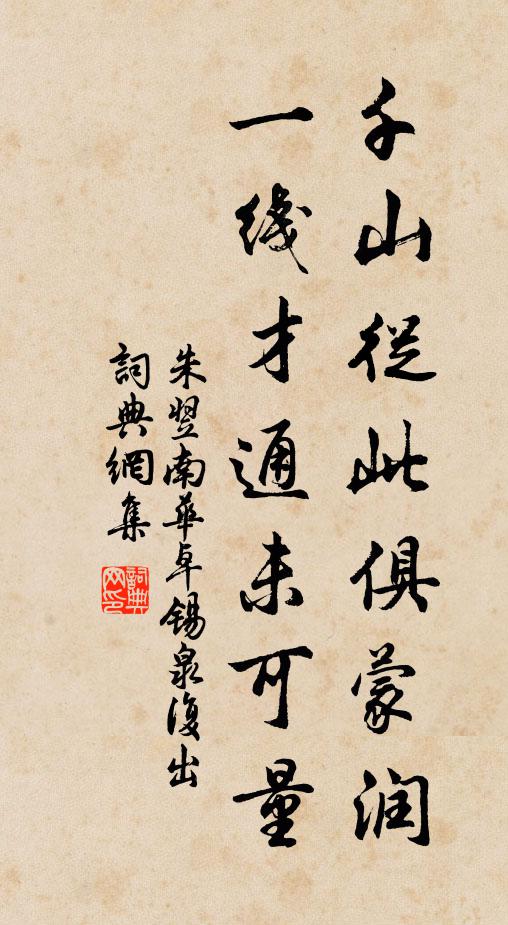 千山從此俱蒙润
一綫才通未可量
朱翌南華卓锡泉復出
詞典網集
詞典网印